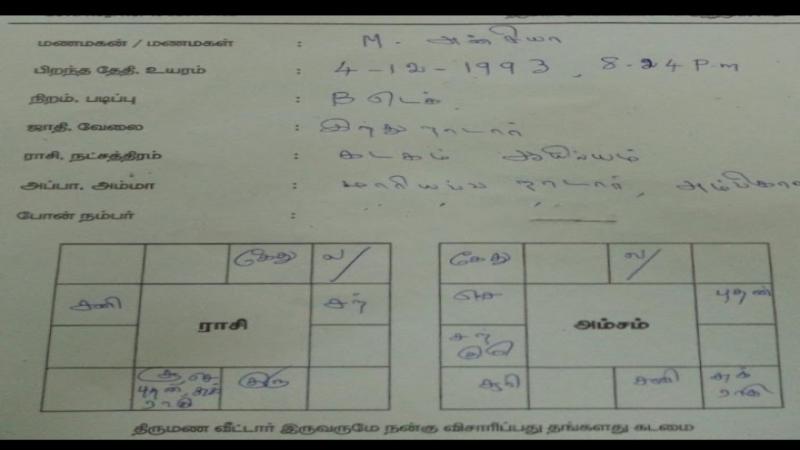 மணமகன் / மணமகள் : M. அனுசியா
பிறந்த தேதி, உயரம் : 4-12-1993, 8-24 P.m
நிறம், படிப்பு : B டெக்
ஜாதி, வேலை : இந்து நாடார்
ராசி, நட்சத்திரம் : கடகம் ஆயில்யம்
அப்பா, அம்மா : மாரியப்ப நாடார்,
போன் நம்பர் :
கேது ல/ கேது ல/
சனி சந் செ புதன்
ராசி சந் குளி அம்சம்
செ புதன் சுக் ராகு குரு சூரி சனி சுக் ராகு
திருமண வீட்டார் இருவருமே நன்கு விசாரிப்பது தங்களது கடமை